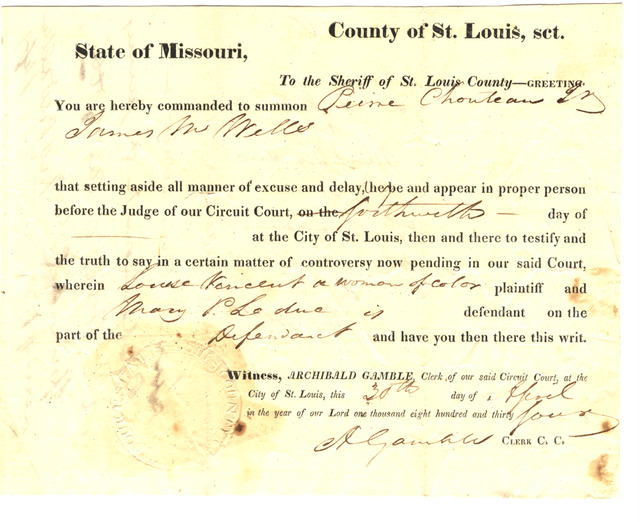 County of St. Louis, sct.
State of Missouri,
To the Sheriff of St. Louis County—GREETING.
You are hereby commanded to summon Peirre Chouteau Jr
James M Wells
that setting aside all manner of excuse and delay, he be and appear in proper person
before the Judge of our Circuit Court, on the forthwith — day of
at the City of St. Louis, then and there to testify and
the truth to say in a certain matter of controversy now pending in our said Court,
wherein Louise Vincent a woman of color plaintiff and
Mary P. Leduc is defendant on the
part of the Defendant and have you then there this writ.
Witness, ARCHIBALD GAMBLE, Clerk of our said Circuit Court, at the
City of St. Louis, this 30th day of April
in the year of our Lord one thousand eight hundred and thirty four
A Gamble CLERK C. C.